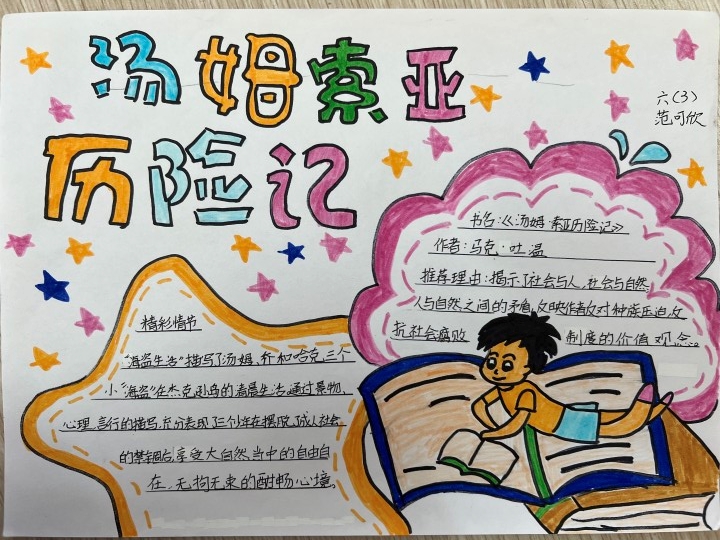 汤姆索亚
历险记
六(3)
范可欣
书名:《汤姆·索亚历险记》
作者:马克·吐温
推荐理由:揭示了社会与人,社会与自然,
人与自然之间的矛盾,反映作者反对种族压迫,反
抗社会腐败 制度的价值观念。
精彩情节
"海盗生活"描写了汤姆,乔和哈克三个
小"海盗"在杰克逊岛的 生活,通过景物,
心理,言行的描写,充分表现了三个少年在摆脱了成人社会
的禁锢后,享受大自然当中的自由自
在,无拘无束的酣畅心境。